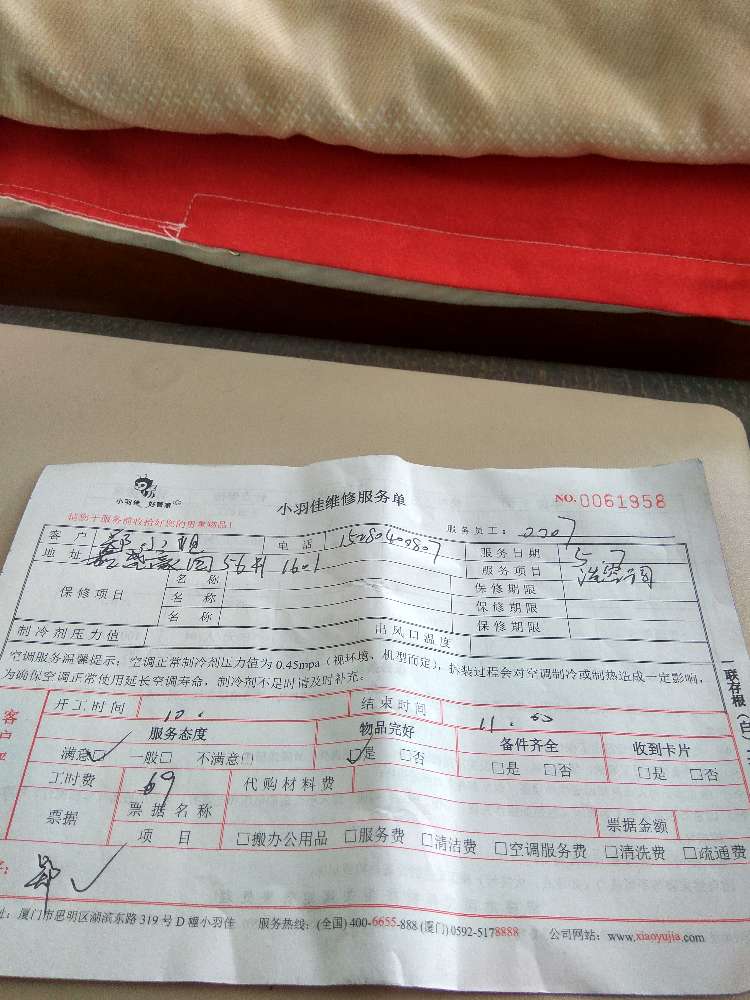 小羽佳 好管家
小羽佳维修服务单
NO.0061958
请您于服务前收拾好您的贵重物品!
服务员工: 0207
客户 郑小姐 电话 15280400807 服务日期 5.7
地址 56#1601 服务项目 洗空调
保修项目 名称 保修期限
名称 保修期限
名称 保修期限
制冷剂压力值 出风口温度
空调服务温馨提示:空调正常制冷剂压力值为0.45mpa(视环境、机型而定),拆装过程会对空调制冷或制热造成一定影响,
为确保空调正常使用延长空调寿命,制冷剂不足时请及时补充。
联存根(白)
客户
开工时间 10. 结束时间 11.00
服务态度 物品完好 备件齐全 收到卡片
满意□ 一般□ 不满意□ □是 □否 □是 □否 □是 □否
工时费 69 代购材料费
票据 票据名称 票据金额
项目 □搬办公用品 □服务费 □清洁费 □空调服务费 □清洗费 □疏通费
郑
址:厦门市思明区湖滨东路319号D幢小羽佳 服务热线:(全国)400-6655-888 (厦门)0592-5178888 公司网站:www.xiaoyujia.com